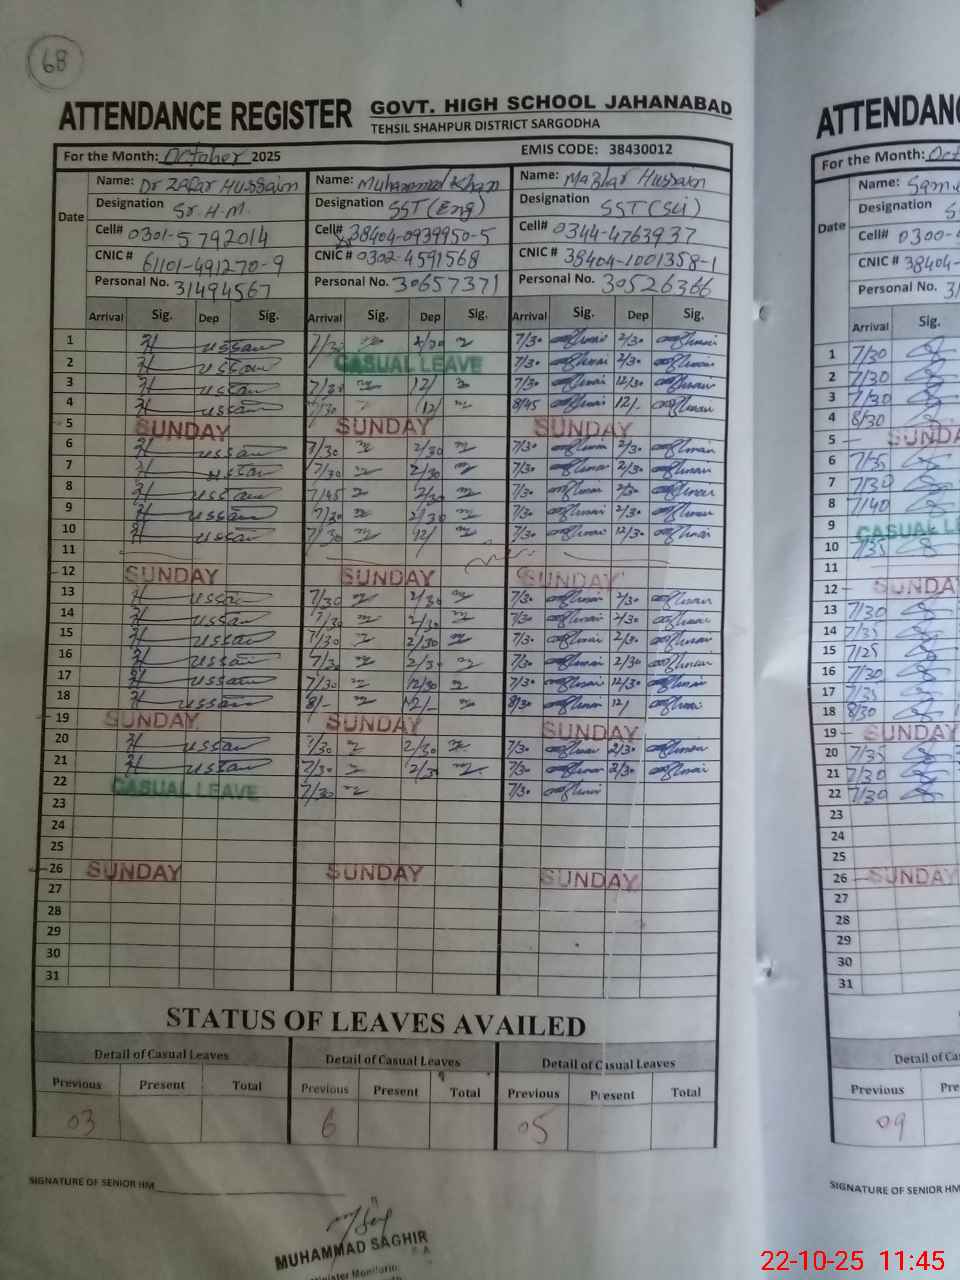 68
ATTENDANCE REGISTER GOVT. HIGH SCHOOL JAHANABAD
TEHSIL SHAHPUR DISTRICT SARGODHA
For the Month: October 2025 EMIS CODE: 38430012
Date Name: Dr Zafar Hussain Name: Muhammad Khan Name: Mazhar Hussain
Designation Sr. H.M. Designation SST (Eng) Designation SST (Sci)
Cell# 0301-5792014 Cell# 38404-0939950-5 Cell# 0344-4763937
CNIC # 61101-491270-9 CNIC # 0302-4591568 CNIC # 38404-1001358-1
Personal No. 31494567 Personal No. 30657371 Personal No. 30526366
Arrival Sig. Dep Sig. Arrival Sig. Dep Sig. Arrival Sig. Dep Sig.
1 7/30 2/30 7/30 2/30
2 CASUAL LEAVE 7/30 2/30
3 7/30 12/ 7/30 12/30
4 7/30 12/ 8/45 12/-
5 SUNDAY SUNDAY SUNDAY
6 7/30 2/30 7/30 2/30
7 7/30 2/30 7/30 2/30
8 7/45 2/30 7/30 2/30
9 7/30 2/30 7/30 2/30
10 7/30 12/ 7/30 12/30
11
12 SUNDAY SUNDAY SUNDAY
13 7/30 2/30 7/30 2/30
14 7/30 2/30 7/30 2/30
15 7/30 2/30 7/30 2/30
16 7/30 2/30 7/30 2/30
17 7/30 12/30 7/30 12/30
18 8/- 12/- 8/30 12/
19 SUNDAY SUNDAY SUNDAY
20 7/30 2/30 7/30 2/30
21 7/30 2/30 7/30 2/30
22 CASUAL LEAVE 7/30 7/30
23
24
25
26 SUNDAY SUNDAY SUNDAY
27
28
29
30
31
STATUS OF LEAVES AVAILED
Detail of Casual Leaves Detail of Casual Leaves Detail of Casual Leaves
Previous Present Total Previous Present Total Previous Present Total
03 6 05
SIGNATURE OF SENIOR HM
MUHAMMAD SAGHIR
ATTENDANC
For the Month: Oct
Date Name:
Designation
Cell# 0300-
CNIC # 38404-
Personal No. 31
Arrival Sig.
1 7/30
2 7/30
3 7/30
4 8/30
5 SUNDA
6 7/35
7 7/30
8 7/40
9 CASUAL LE
10 7/35
11
12 SUNDA
13 7/30
14 7/35
15 7/25
16 7/30
17 7/35
18 8/30
19 SUNDAY
20 7/35
21 7/30
22 7/30
23
24
25
26 SUNDAY
27
28
29
30
31
Detail of Ca
Previous Pre
09
SIGNATURE OF SENIOR HM
22-10-25 11:45